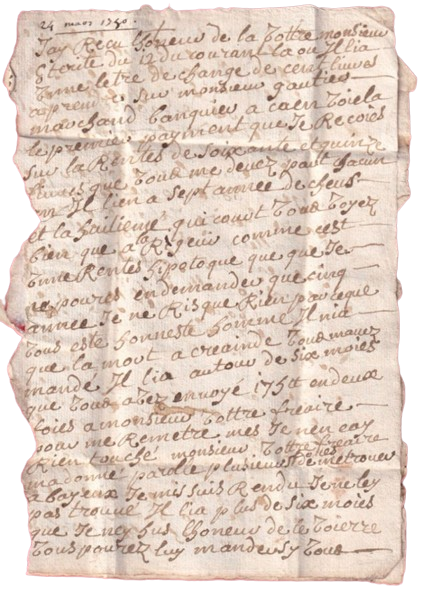 24 mars 1750.
Jay Recu lhoneur de la Vottre monsieur
Ecritte du 12 du courant la ou Il lia
Vnne letre de change de cent liures
a prendre sur monsieur gautier
marchand banquier a caen Voiela
le premier payment que Je Recoies
sur la Rentes de soixante et quinze
liures que Vous me deuez par chacun
an Il lien a sept annee de cheus
et la huitieme qui court Vous Voyez
bien que a la Rigeur comme cest
Vnne Rentes hipoteque que Je
ne poures en demander que cinq
annee Je ne Risque Rien par ceque
Vous este honneste homme Il nia
que la mort a creaindre Vous mauez
mande Il lia autour de six moies
que Vous abez envoyé 175# en deux
foies a monsieur Vottre freaire
pour me Remetre mes Je nen ay
Rien touche monsieur Vottre freaire
ma donne parole plusieurs foies de me trouuer
a bayeux Je mis suis Rendu Je ne ley
pas trouue Il lia plus de six moies
que Je ney hus lhoneur de le Voierre
Vous pourez luy mander sy Vous